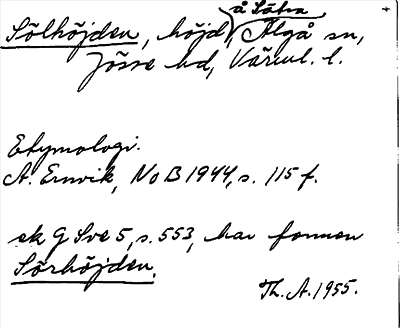 å Säha
Sölhöjden, höjd, Älgå sn,
Jösse hd, Värml. l.
Etymologi.
A. Ernvik, NoB 1944, s. 115 f.
ek G Sve 5, s. 553, har formen
Sörhöjden.
Th. A. 1955.